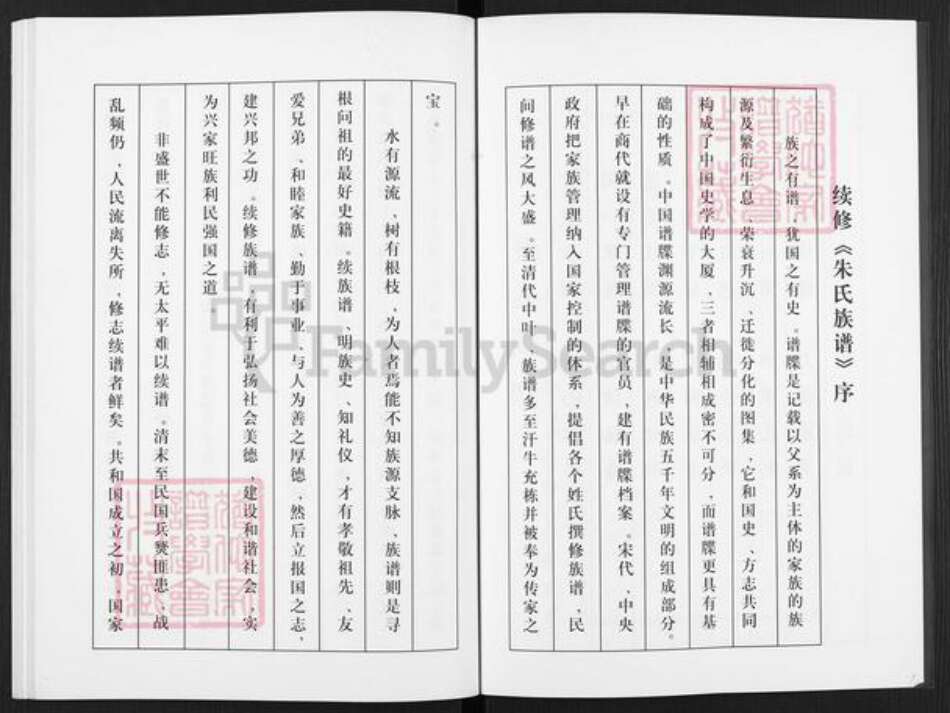 续修《朱氏族谱》序
族之有谱、犹国之有史。谱牒是记载以父系为主体的家族的族
源及繁衍生息、荣衰升沉、迁徙分化的图集，它和国史、方志共同
构成了中国史学的大厦，三者相辅相成密不可分，而谱牒更具有基
础的性质。中国谱牒渊源流长，是中华民族五千年文明的组成部分。
早在商代就设有专门管理谱牒的官员，建有谱牒档案。宋代，中央
政府把家族管理纳入国家控制的体系，提倡各个姓氏撰修族谱，民
间修谱之风大盛。至清代中叶、族谱多至汗牛充栋并被奉为传家之
宝。
水有源流，树有根枝，为人者焉能不知族源支脉，族谱则是寻
根问祖的最好史籍。续族谱、明族史、知礼仪，才有孝敬祖先、友
爱兄弟、和睦家族、勤于事业、与人为善之厚德，然后立报国之志，
建兴邦之功。续修族谱，有利于弘扬社会美德，建设和谐社会，实
为兴家旺族利民强国之道。
非盛世不能修志，无太平难以续谱。清末至民国兵燹匪患、战
乱频仍，人民流离失所，修志续谱者鲜矣。共和国成立之初，国家
FamilySearch